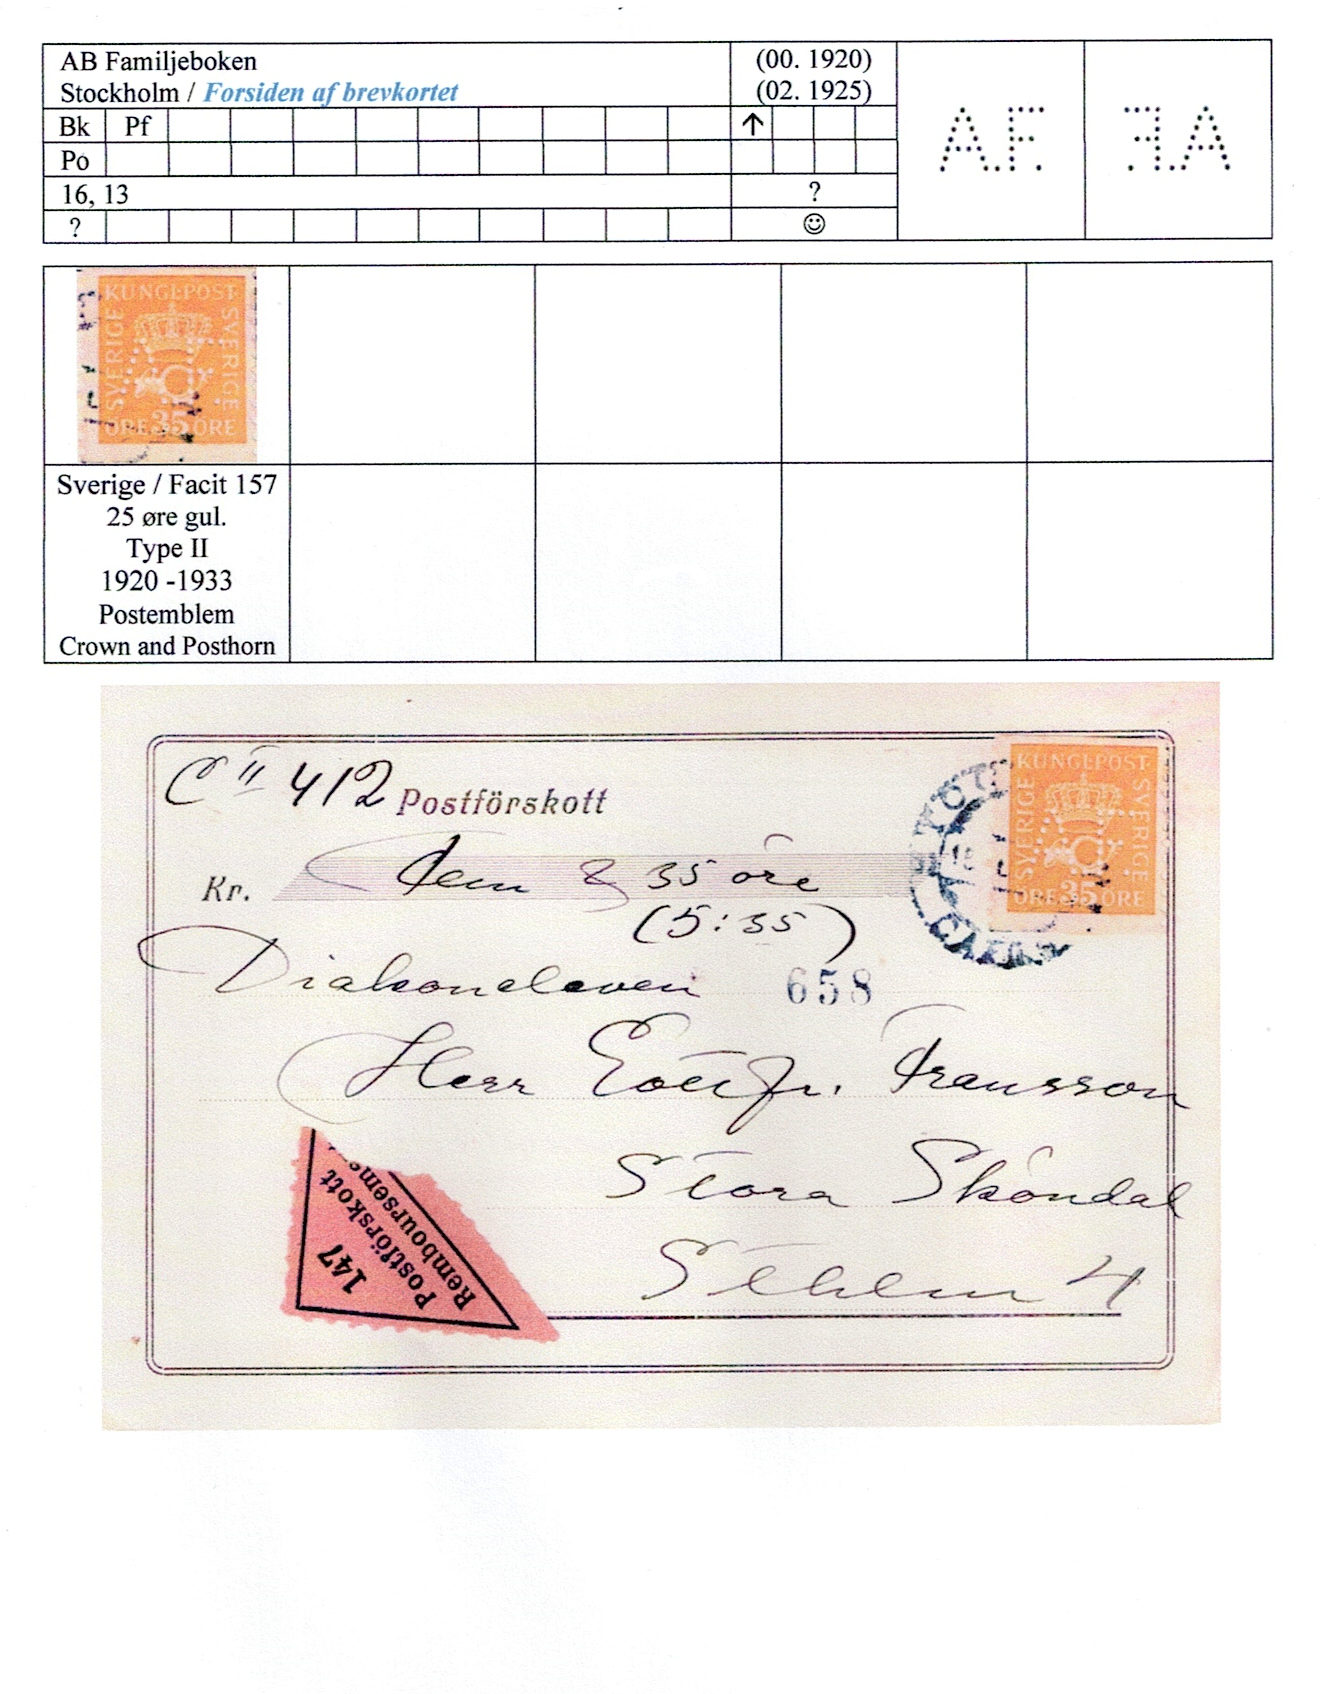 AB Familjeboken
Stockholm / Forsiden af brevkortet
(00. 1920)
(02. 1925)
Bk Pf
↑
Po
16, 13
?
?
☺
A.F.
KUNGL POST
SVERIGE SVERIGE
ÖRE 35 ÖRE
Sverige / Facit 157
25 øre gul.
Type II
1920 -1933
Postemblem
Crown and Posthorn
C II 412 Postförskott
Kr. Fem & 35 öre
(5:35)
KUNGL POST
SVERIGE SVERIGE
ÖRE 35 ÖRE
Diakoneleven 658
Herr Gottfr. Fransson
Stora Sköndal
Sthlm 4
147
Postförskott